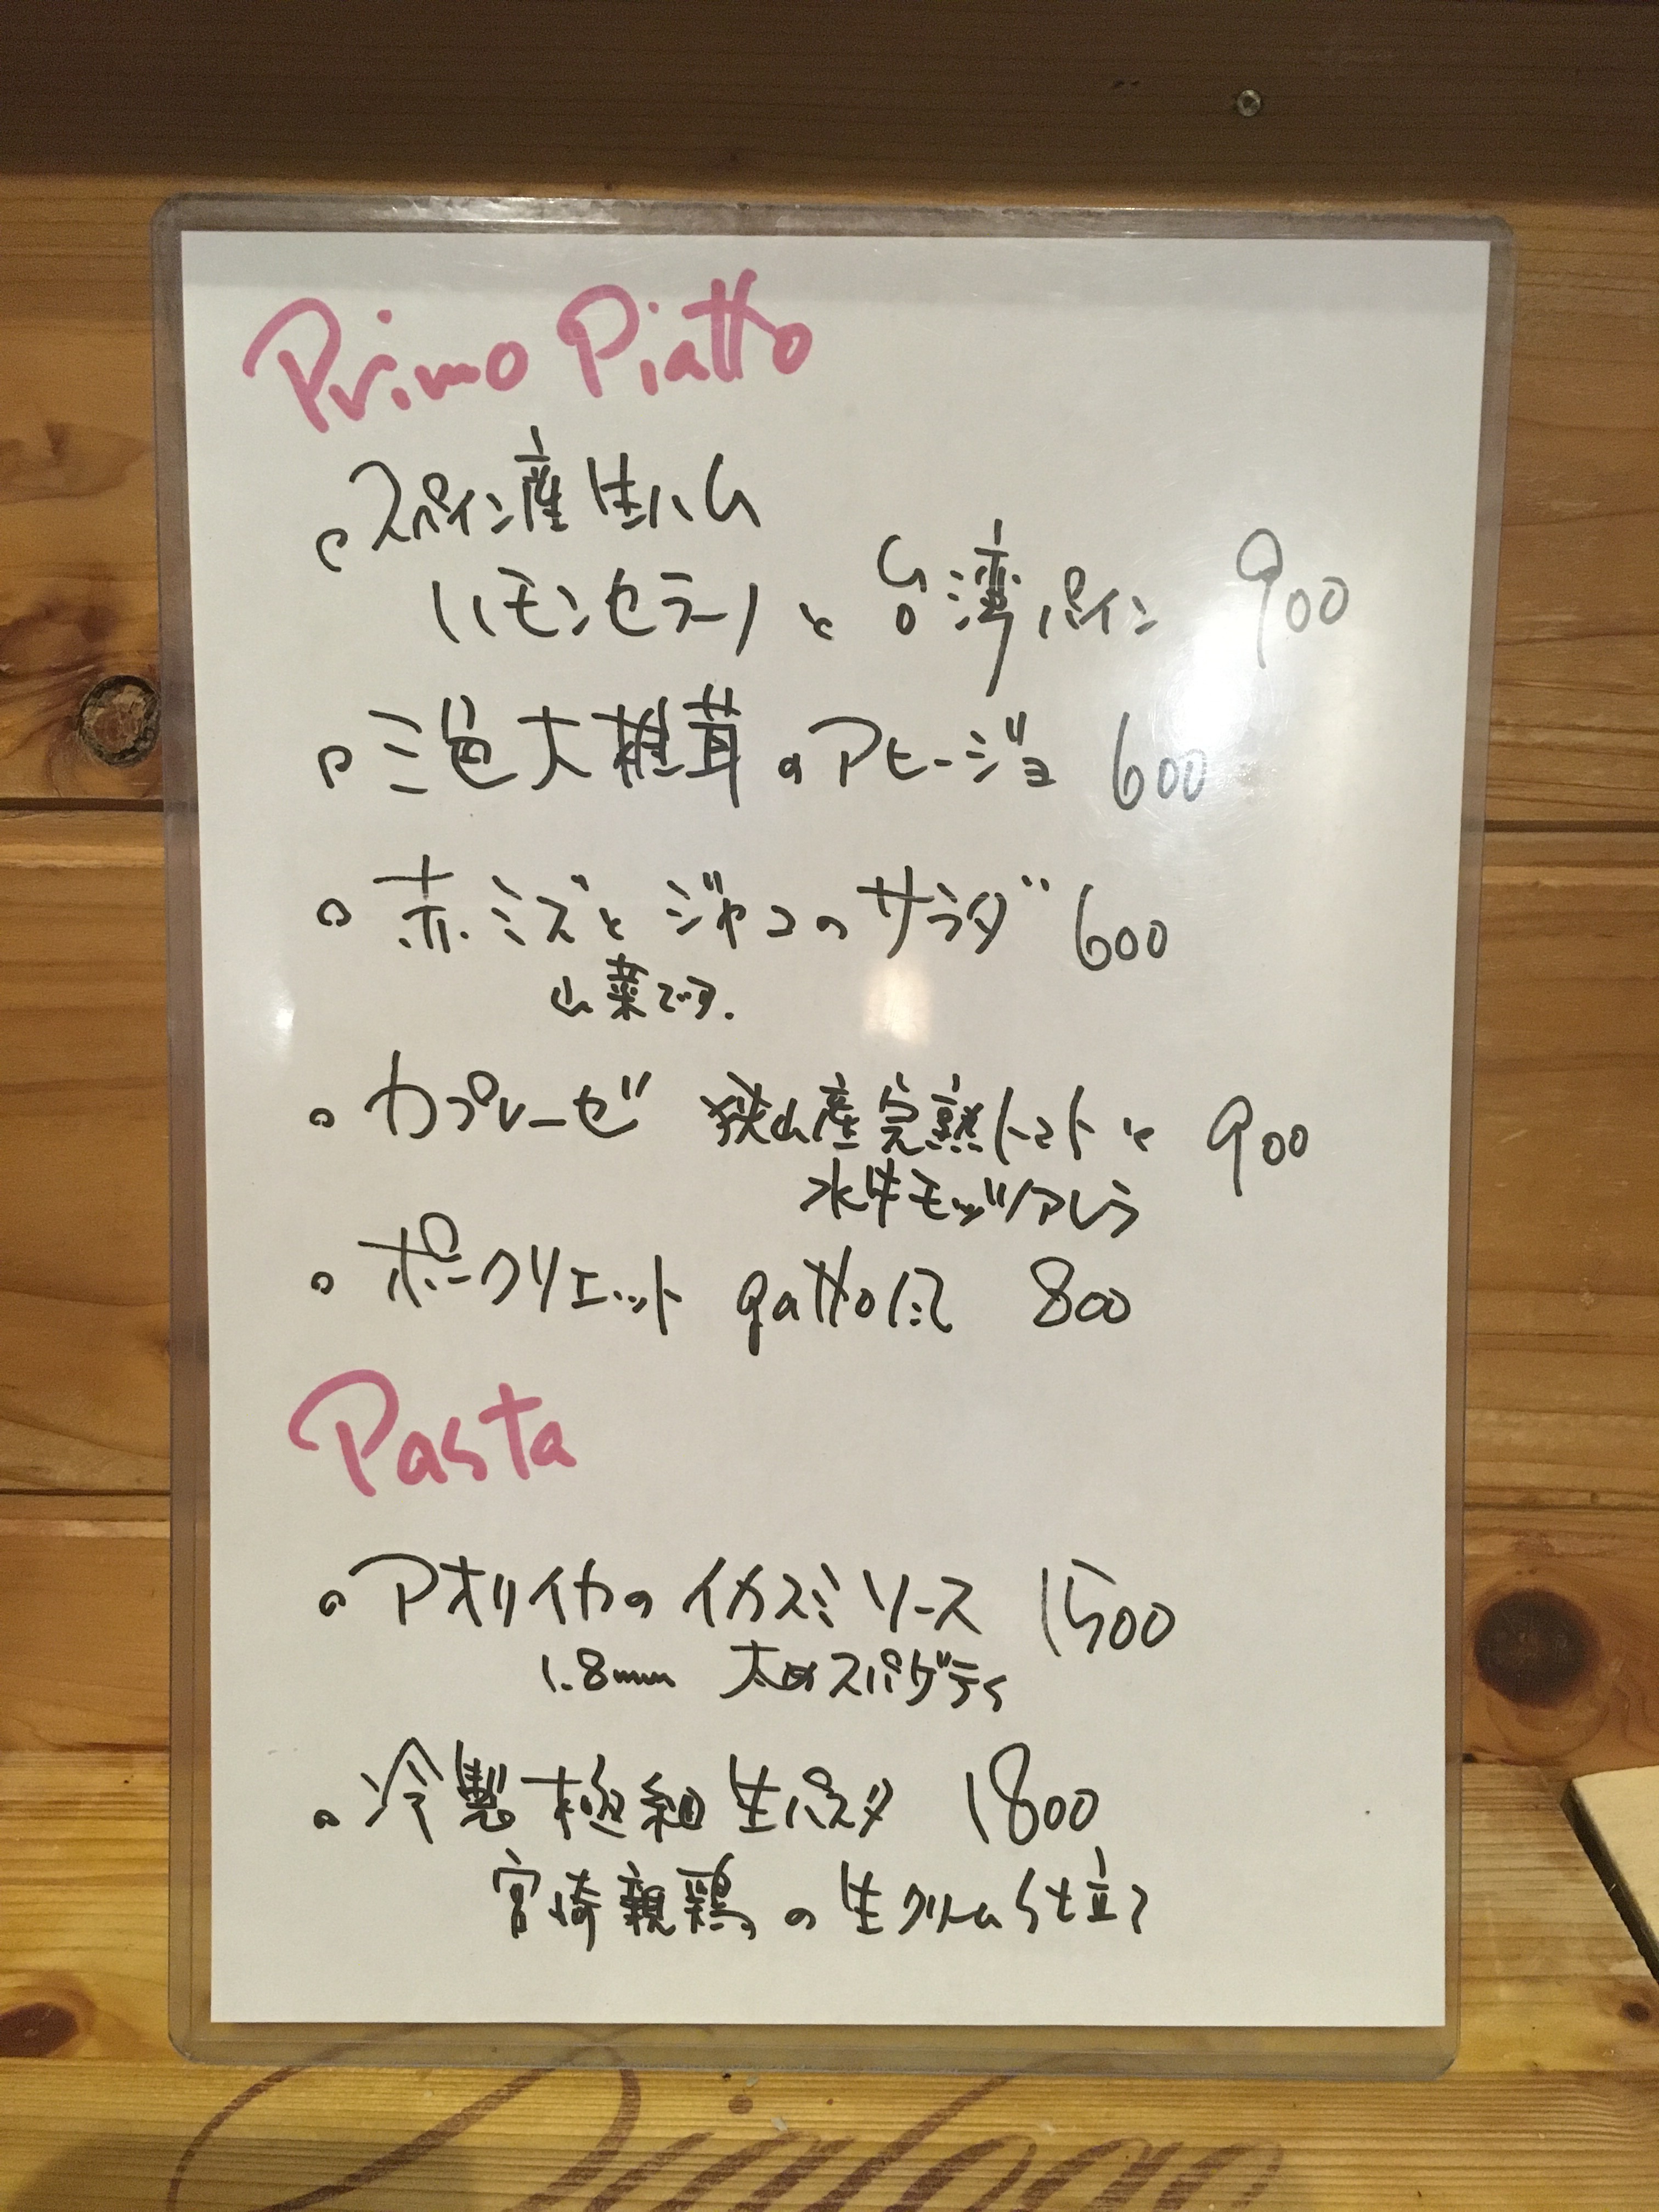 Primo Piatto
スペイン産生ハム
ハモンセラーノと台湾パイン 900
三色大椎茸のアヒージョ 600
赤ミズとジャコのサラダ 600
山菜です.
カプレーゼ 狭山産完熟トマトと 900
水牛モッツァレラ
ポークリエット gatto風 800
Pasta
アオリイカのイカスミソース 1500
1.8mm 太めスパゲティ
冷製極細生パスタ 1800
宮崎親鶏の生クリーム仕立て